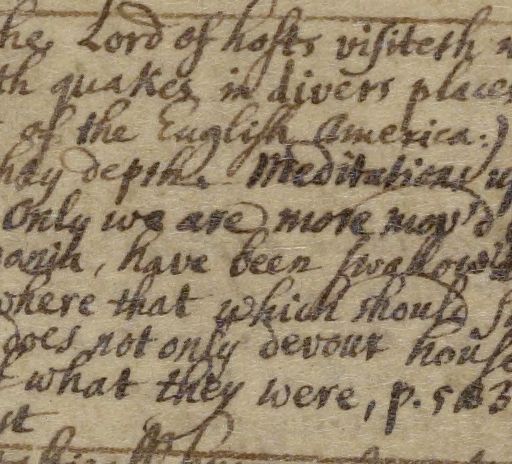 he Lord of hosts visiteth
th quakes in divers places
of the English America:)
depth. Meditations up
Only we are more mov'd
have been swallow'd
where that which should
does not only devour house
what they were, p. 583